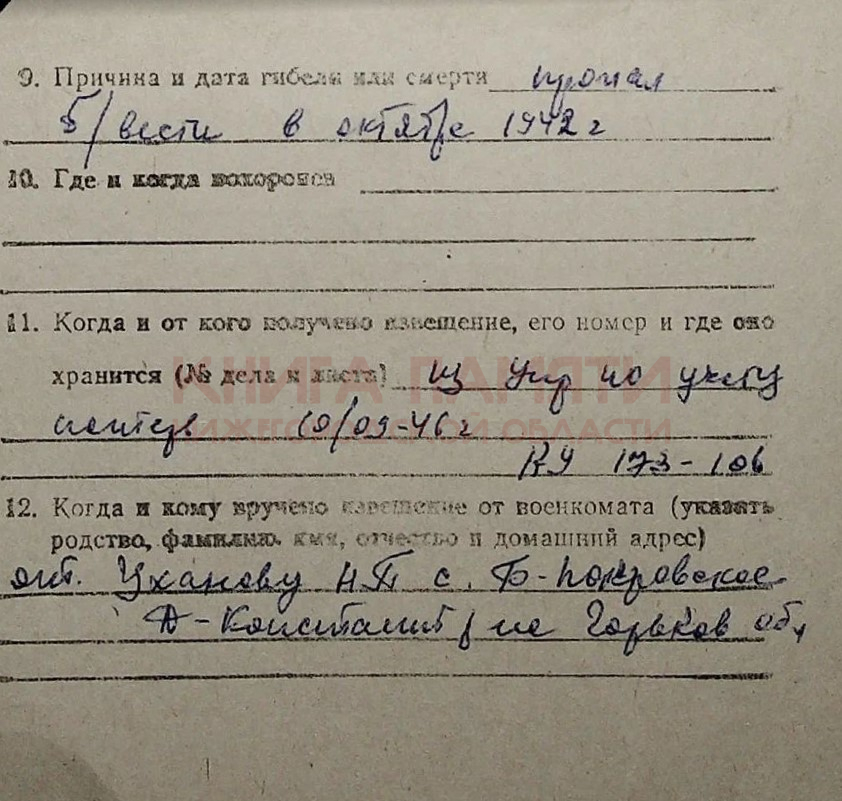 9. Причина и дата гибели или смерти пропал
б/вести в октябре 1942 г
10. Где и когда похоронен
11. Когда и от кого получено извещение, его номер и где оно
КНИГА ПАМЯТИ
хранится (№ дела и листа) из Упр по учету
НИЖЕГОРОДСКОЙ ОБЛАСТИ
потерь 10/09-46 г
173-106
12. Когда и кому вручено извещение от военкомата (указать
родство, фамилию, имя, отчество и домашний адрес)
Уханову НП с. Б-Покровское
Д-Констант р-не Горьков обл